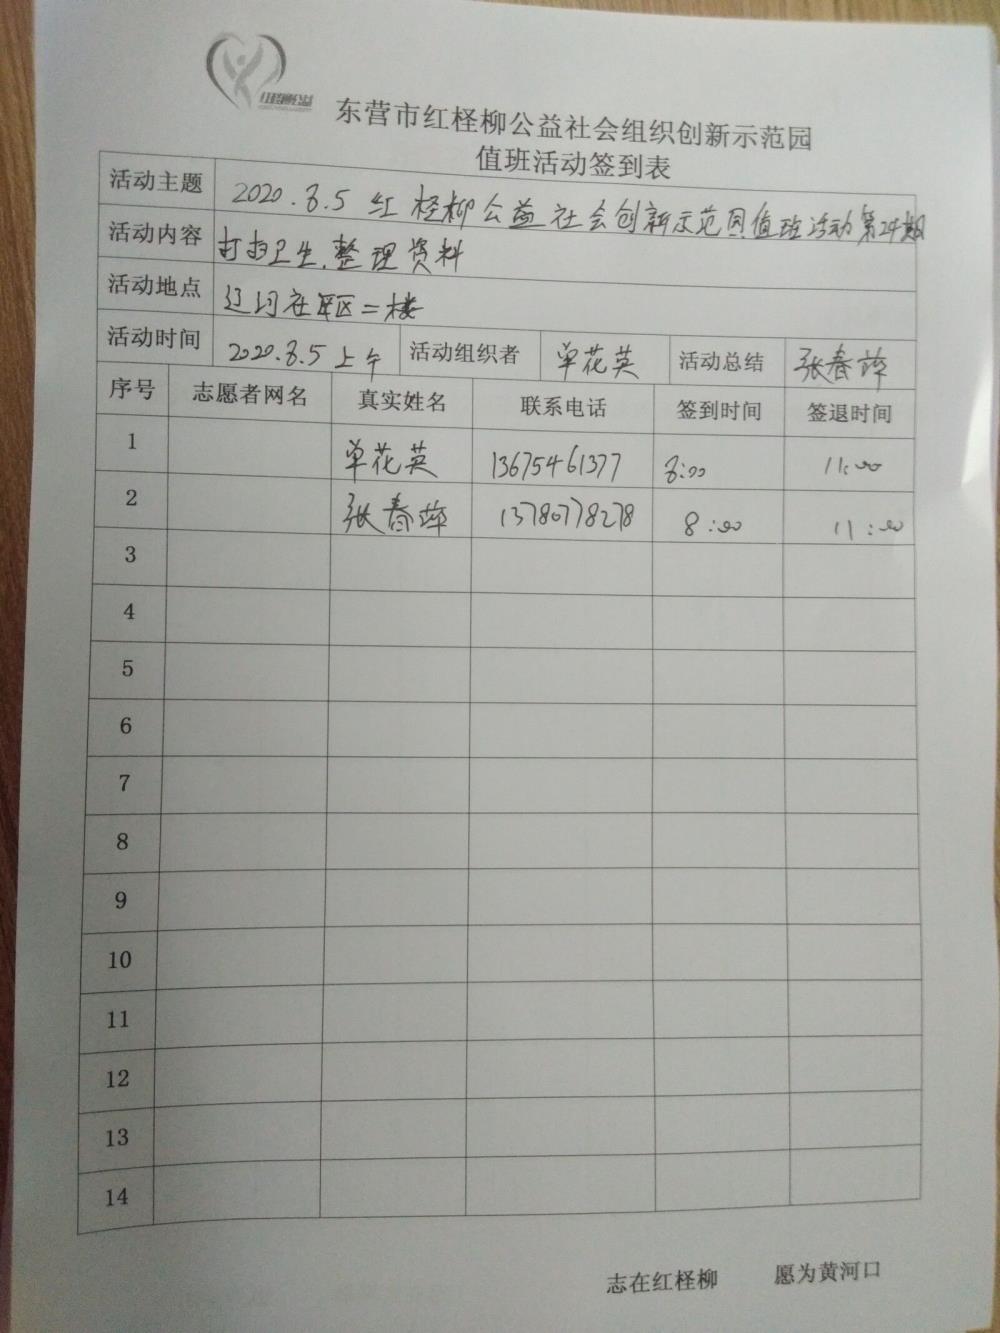 红柽柳公益
东营市红柽柳公益社会组织创新示范园
值班活动签到表
活动主题 2020.8.5 红柽柳公益社会创新示范园值班活动第24期
活动内容 打扫卫生.整理资料
活动地点 辽河社区二楼
活动时间 2020.8.5 上午 活动组织者 单花英 活动总结 张春萍
序号 志愿者网名 真实姓名 联系电话 签到时间 签退时间
1 单花英 13675461377 8:00 11:00
2 张春萍 13780778278 8:00 11:00
3
4
5
6
7
8
9
10
11
12
13
14
志在红柽柳 愿为黄河口